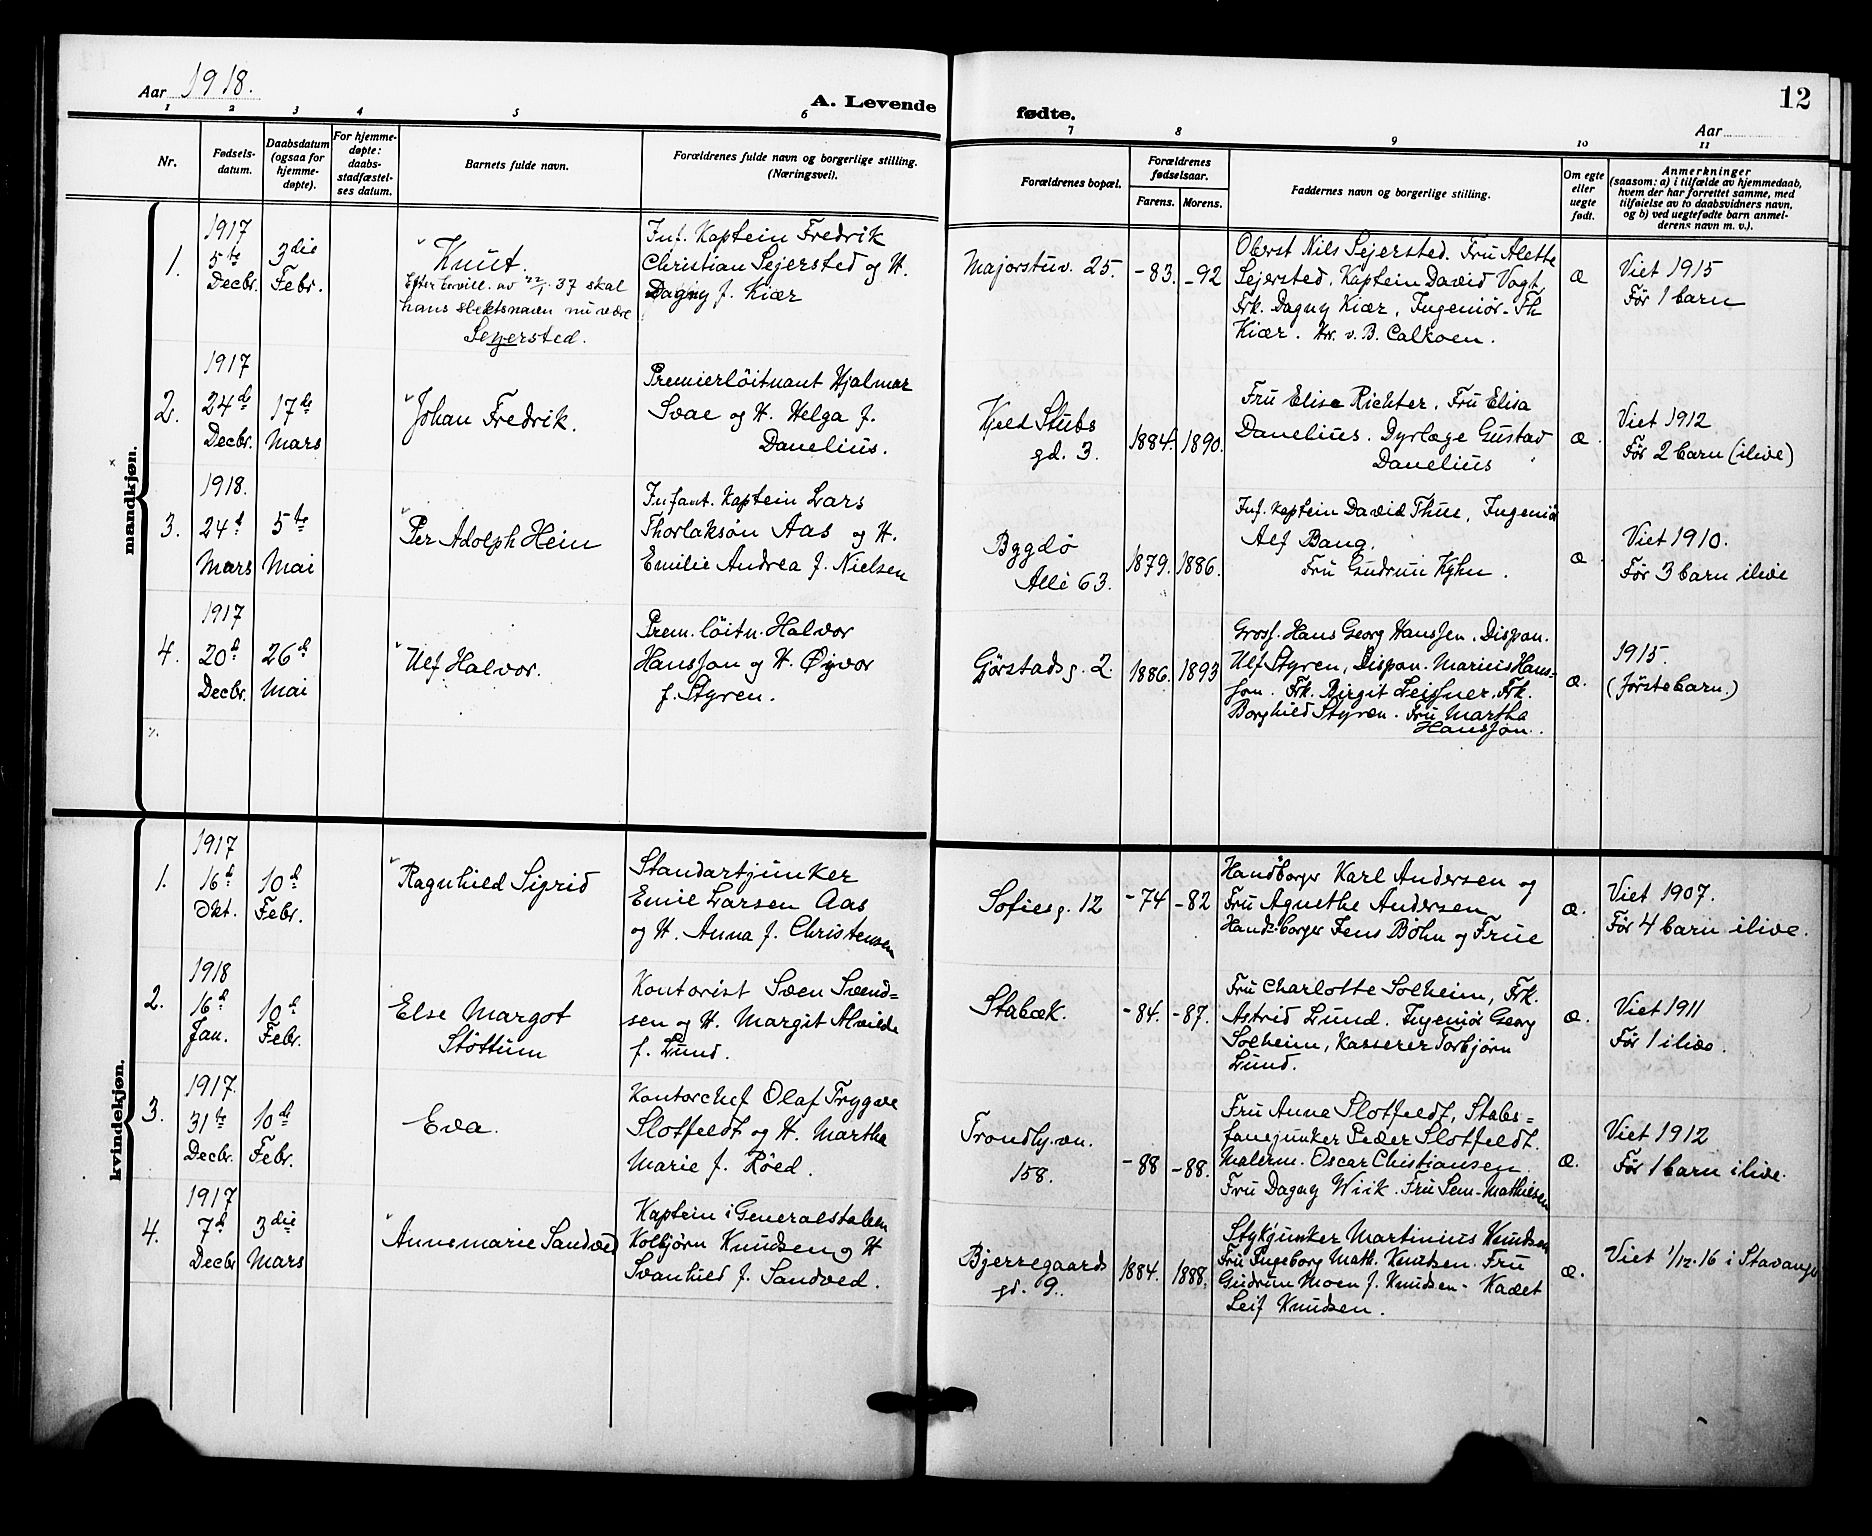 Aar 1918.
A. Levende
fødte.
12
Aar
1 2 3 4 5 6 7 8 9 10 11
Nr.
Fødsels-
datum.
Daabsdatum
(ogsaa for
hjemme-
døpte).
For hjemme-
døpte:
daabs-
stadfæstel-
ses datum.
Barnets fulde navn.
Forældrenes fulde navn og borgerlige stilling.
(Næringsvei).
Forældrenes bopæl.
Forældrenes
fødselsaar.
Farens. Morens.
Faddernes navn og borgerlige stilling.
Om egte
eller
uegte
født.
Anmerkninger
(saasom: a) i tilfælde av hjemmedaab,
hvem der har forrettet samme, med
tilføielse av to daabsvidners navn,
og b) ved uegtefødte barn anmel-
derens navn m. v.).
mandkjøn.
1.
1917
5te
Decbr.
3die
Febr.
Knut.
Efter bevill. av 22/1 37 skal
hans slektsnavn nu være
Sejersted.
Inf. Kaptein Fredrik
Christian Sejersted og H.
Dagny f. Kiær
Majorstuv. 25.
-83. -92
Oberst Nils Sejersted. Fru Alette
Sejersted. Kaptein David Vogt,
Frk. Dagny Kiær, Ingeniör Th
Kiær. Hr. v. B. Calkoen.
æ
Viet 1915
Før 1 barn
2.
1917
24de
Decbr.
17de
Mars
Johan Fredrik.
Premierlöitnant Hjalmar
Svae og H. Helga f.
Danelius.
Kjeld Stubs
gd. 3.
1884. 1890.
Fru Elise Richter. Fru Elisa
Danelius. Dyrlæge Gustav
Danelius
æ.
Viet 1912
Før 2 barn (ilive)
3.
1918.
24d
Mars
5te
Mai
Per Adolph Hein
Infant. Kaptein Lars
Thorlaksön Aas og H.
Emilie Andrea f. Nielsen
Bygdö
Allé 63.
1879. 1886.
Inf. Kaptein David Thue, Ingeniör
Alf Bang.
Fru Gudrun Kyhn.
æ.
Viet 1910.
Før 3 barn ilive
4.
1917
20d
Decbr.
26d
Mai
Ulf Halvor.
Prem. löitn. Halvor
Hansson og H. Øyvor
f. Styren.
Gjörstads g. 2
1886. 1893
Gross. Hans Georg Hanssen. Dispon.
Ulf Styren, Dispon. Marius Hans-
son. Frk. Birgit Leisner. Frk.
Borghild Styren. Fru Martha
Hansson.
æ.
1915.
(förste barn.)
kvindekjøn.
1.
1917
16d
Okt.
10d
Febr.
Ragnhild Sigrid
Standartjunker
Emil Larsen Aas
og H. Anna f. Christensen
Sofiesg. 12
-74 -82
Hand.borger Karl Andersen og
Fru Agnethe Andersen
Hands.borger Jens Böhn og Frue
æ.
Viet 1907.
Før 4 barn ilive.
2.
1918
16d
Jan.
10d
Febr.
Else Margot
Stöttum
Kontorist Sven Svend=
sen og H. Margit Alvilde
f. Lund.
Stabæk.
-84. -87.
Fru Charlotte Solheim, Frk.
Astrid Lund. Ingeniör Georg
Solheim, Kasserer Torbjörn
Lund.
æ.
Viet 1911
Før 1 ilive.
3.
1917.
31te
Decbr.
10de
Febr.
Eva.
Kontorchef Olaf Trygve
Slotfeldt og H. Marthe
Marie f. Röed.
Trondhj.vn.
158.
-88 -88.
Fru Anna Slotfeldt, Stabs=
fanejunker Peder Slotfeldt.
Malerm. Oscar Christiansen.
Fru Dagny Wiik. Fru Sem-Mathiesen
æ.
Viet 1912
Før 1 barn ilive.
4.
1917
7d
Decbr
3die
Mars
Annemarie Sandved
Kaptein i Generalstaben
Kolbjörn Knudsen og H
Svanhild f. Sandved.
Bjerregaards
gd. 9.
1884. 1888.
Stykjunker Martinius Knudsen
Fru Ingeborg Math. Knudsen. Fru
Gudrun Moen f. Knudsen. Kadet
Leif Knudsen.
æ.
Viet 1/12.16 i Stavanger